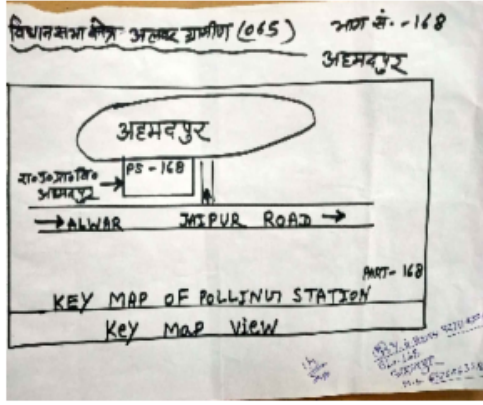 विधानसभा क्षेत्र- अलवर ग्रामीण (065) भाग सं.-168
अहमदपुर
अहमदपुर
PS-168
रा०उ०प्रा०वि०
अहमदपुर
→ALWAR JAIPUR ROAD→
PART-168
KEY MAP OF POLLING STATION
Key Map View